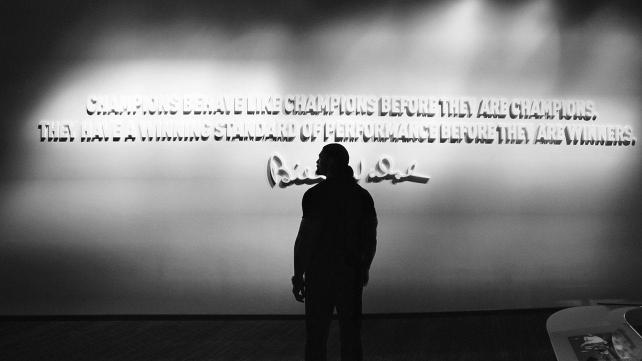 CHAMPIONS BEHAVE LIKE CHAMPIONS BEFORE THEY ARE CHAMPIONS.
THEY HAVE A WINNING STANDARD OF PERFORMANCE BEFORE THEY ARE WINNERS.